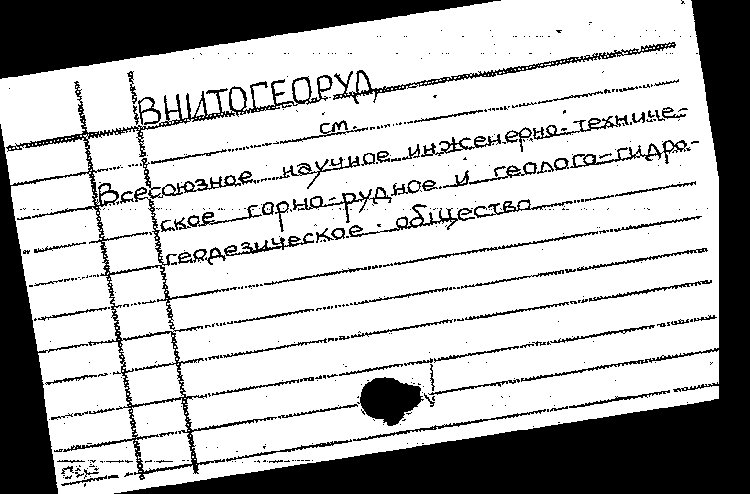 ВНИТОГЕОРУД
см.
Всесоюзное научное инженерно-техниче-
ское горно-рудное и геолого-гидро-
геодезическое общество